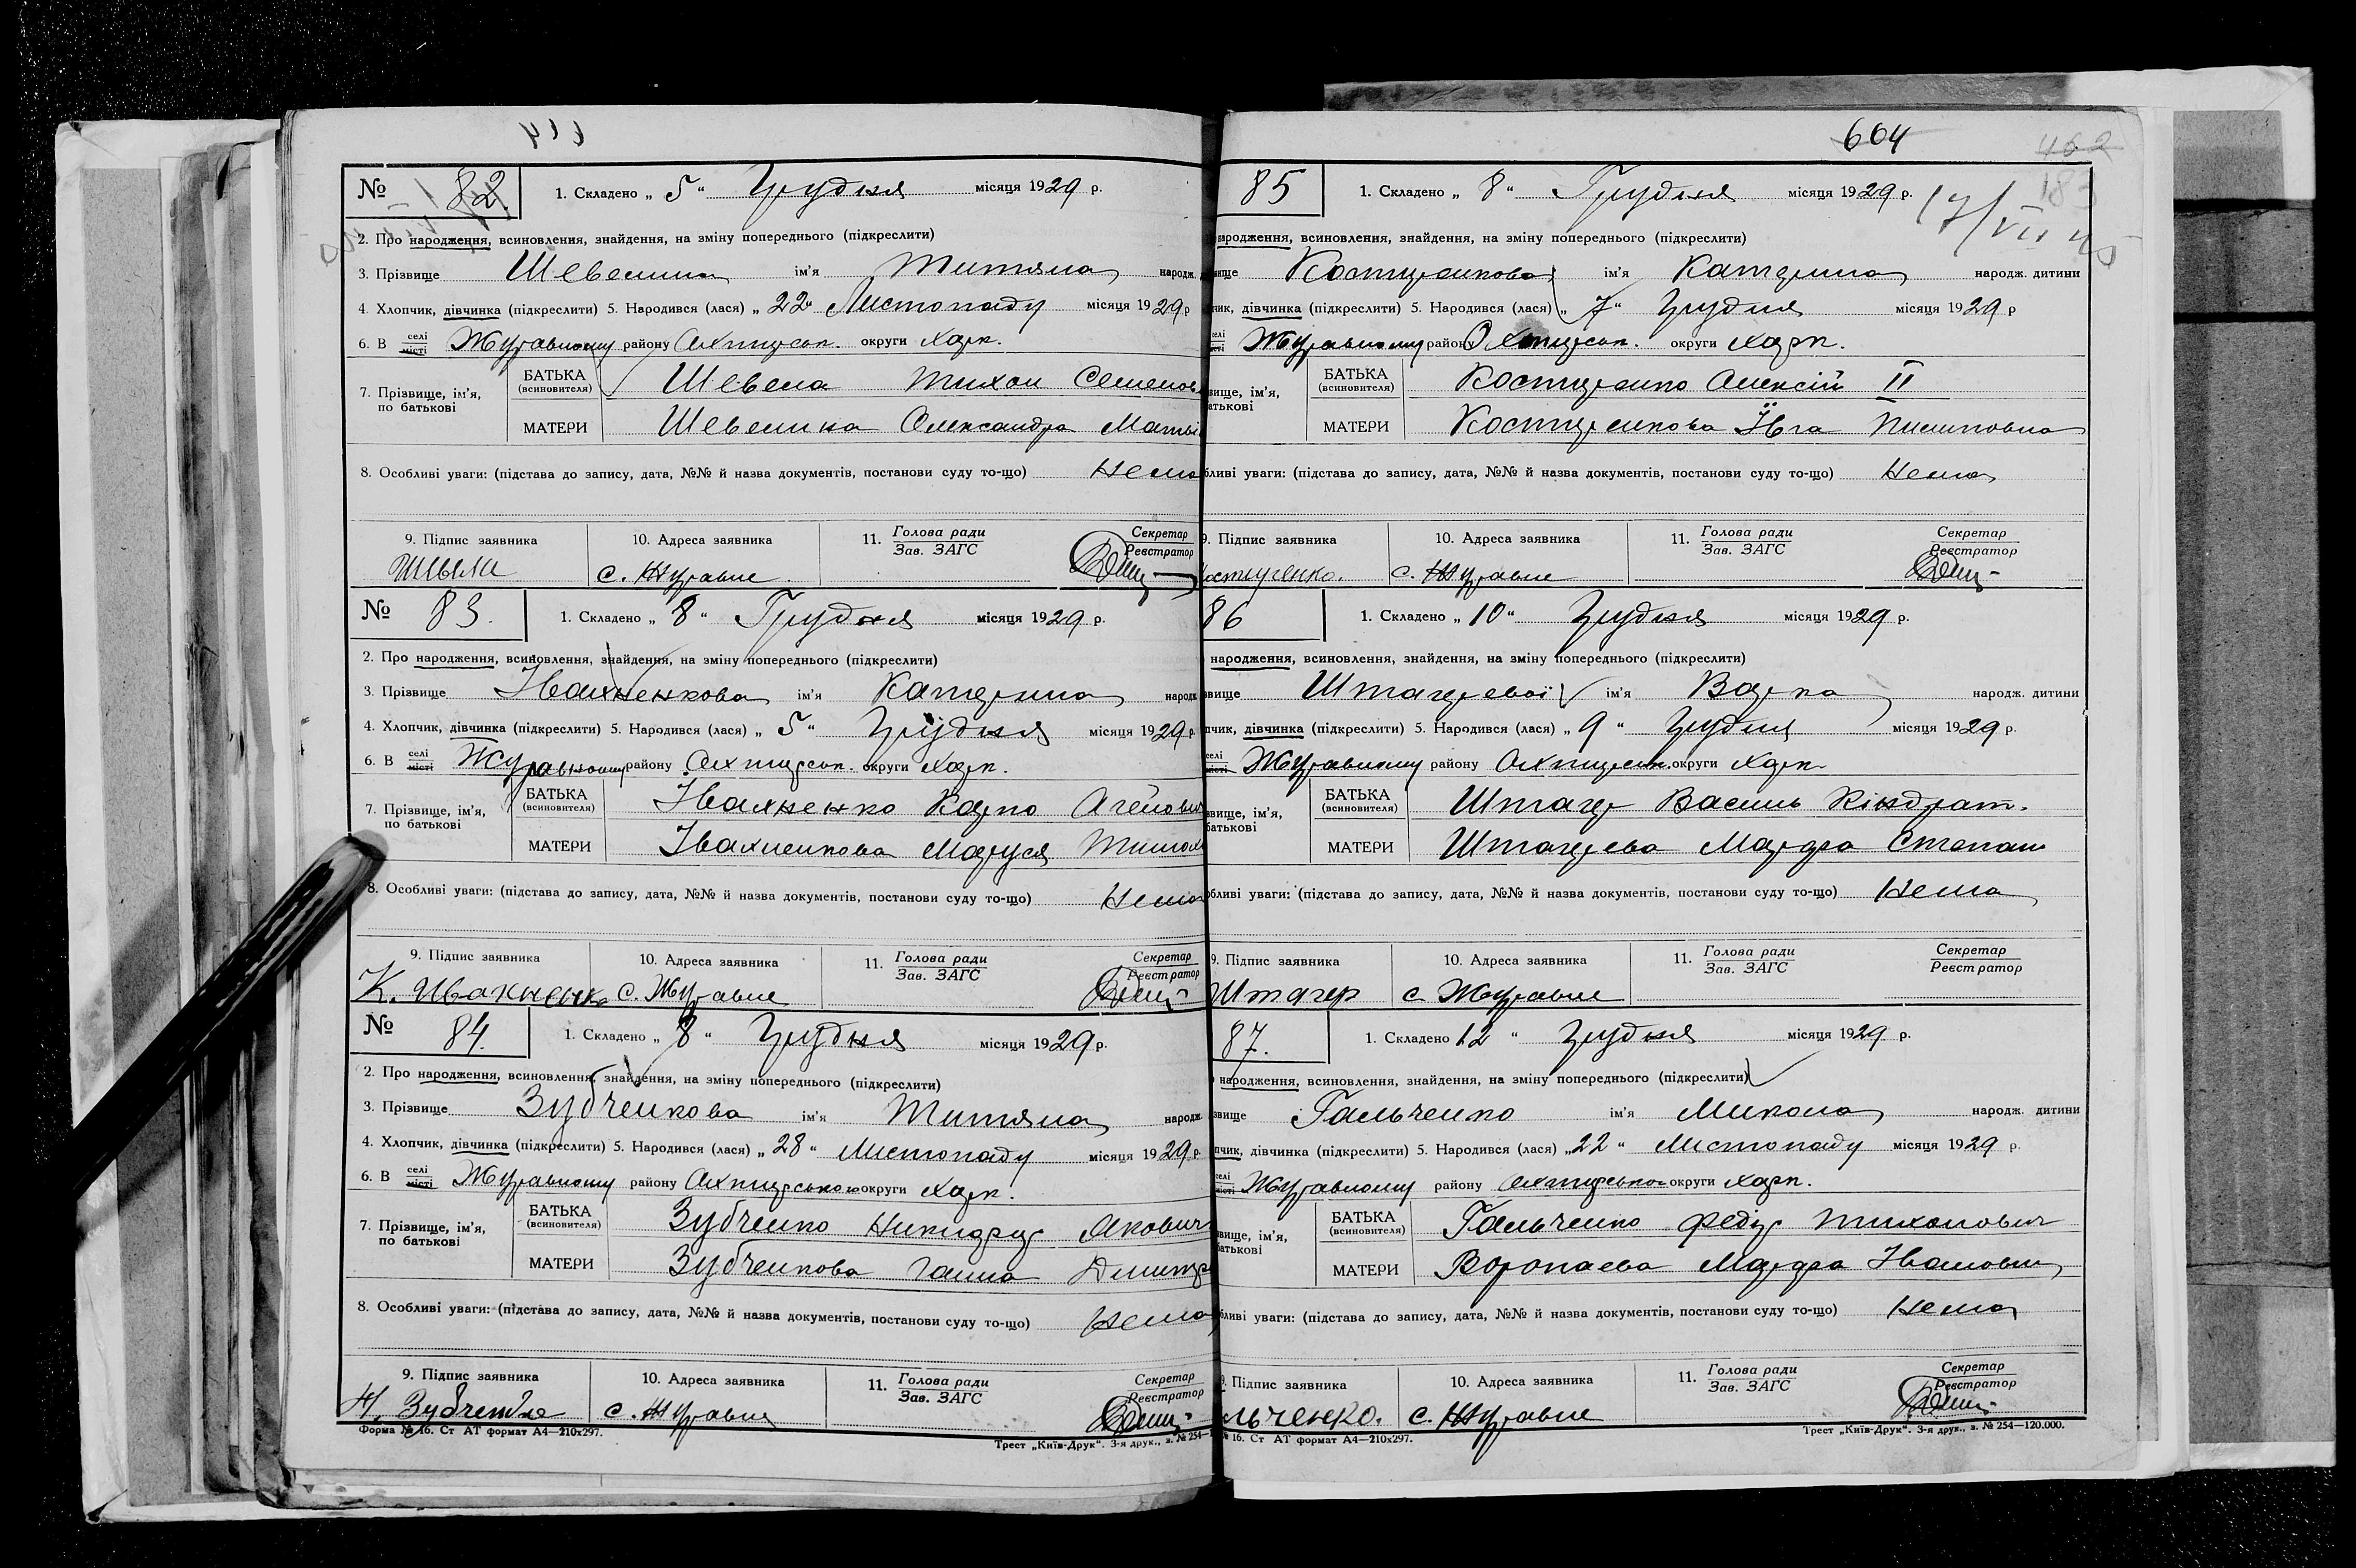 604
462
183
17/VII 45
№ 82. 1. Складено „ 5 “ Грудня місяця 1929 р.
2. Про народження, всиновлення, знайдення, на зміну попереднього (підкреслити)
3. Прізвище Шевелина ім'я Титяна народж.
4. Хлопчик, дівчинка (підкреслити) 5. Народився (лася) „ 22 “ Листопаду місяця 1929 р
6. В селі місті Журавному району Охтирськ. округи Харк.
7. Прізвище, ім'я, по батькові
БАТЬКА (всиновителя) Шевела Тихон Семенов
МАТЕРИ Шевелина Олександра Матв
8. Особливі уваги: (підстава до запису, дата, №№ й назва документів, постанови суду то-що) Нема
9. Підпис заявника 10. Адреса заявника 11. Голова ради Зав. ЗАГС Секретар Реєстратор
Шевела с. Журавне
№ 83. 1. Складено „ 8 “ Грудня місяця 1929 р.
2. Про народження, всиновлення, знайдення, на зміну попереднього (підкреслити)
3. Прізвище Івахненкова ім'я Катерина народж
4. Хлопчик, дівчинка (підкреслити) 5. Народився (лася) „ 5 “ Грудня місяця 1929 р.
6. В селі місті Журавному району Охтирськ. округи Харк.
7. Прізвище, ім'я, по батькові
БАТЬКА (всиновителя) Івахненко Карпо Агейович
МАТЕРИ Івахненкова Маруся
8. Особливі уваги: (підстава до запису, дата, №№ й назва документів, постанови суду то-що) Нема
9. Підпис заявника 10. Адреса заявника 11. Голова ради Зав. ЗАГС Секретар Реєстратор
К. Ивахненко с. Журавне
№ 84. 1. Складено „ 8 “ Грудня місяця 1929 р.
2. Про народження, всиновлення, знайдення, на зміну попереднього (підкреслити)
3. Прізвище Зубченкова ім'я Титяна народж.
4. Хлопчик, дівчинка (підкреслити) 5. Народився (лася) „ 28 “ Листопаду місяця 1929 р.
6. В селі місті Журавному району Охтирського округи Харк.
7. Прізвище, ім'я, по батькові
БАТЬКА (всиновителя) Зубченко Никифор Якович
МАТЕРИ Зубченкова Ганна Дмитр
8. Особливі уваги: (підстава до запису, дата, №№ й назва документів, постанови суду то-що) Нема
9. Підпис заявника 10. Адреса заявника 11. Голова ради Зав. ЗАГС Секретар Реєстратор
Н. Зубченко с. Журавне
Форма № 16. Ст АТ формат А4—210х297. Трест „Київ-Друк“. 3-я друк., з. № 254—
85 1. Складено „ 8 “ Грудня місяця 1929 р.
народження, всиновлення, знайдення, на зміну попереднього (підкреслити)
вище Костиренкова ім'я Катерина народж. дитини
чик, дівчинка (підкреслити) 5. Народився (лася) „ 7 “ Грудня місяця 1929 р
селі місті Журавному району Охтирськ. округи Харк.
вище, ім'я, атькові
БАТЬКА (всиновителя) Костиренко Олексій II
МАТЕРИ Костиренкова Ївга Пилиповна
бливі уваги: (підстава до запису, дата, №№ й назва документів, постанови суду то-що) Нема
9. Підпис заявника 10. Адреса заявника 11. Голова ради Зав. ЗАГС Секретар Реєстратор
остиренко. с. Журавне
86 1. Складено „ 10 “ Грудня місяця 1929 р.
народження, всиновлення, знайдення, на зміну попереднього (підкреслити)
вище Штагерової ім'я Варка народж. дитини
пчик, дівчинка (підкреслити) 5. Народився (лася) „ 9 “ Грудня місяця 1929 р.
селі місті Журавному району Охтирськ. округи Харк
звище, ім'я, батькові
БАТЬКА (всиновителя) Штагер Василь Кіндрат.
МАТЕРИ Штагерева Мархва Степан
обливі уваги: (підстава до запису, дата, №№ й назва документів, постанови суду то-що) Нема
9. Підпис заявника 10. Адреса заявника 11. Голова ради Зав. ЗАГС Секретар Реєстратор
Штагер с Журавне
87. 1. Складено 12 “ Грудня місяця 1929 р.
народження, всиновлення, знайдення, на зміну попереднього (підкреслити)
звище Гальченко ім'я Микола народж. дитини
пчик, дівчинка (підкреслити) 5. Народився (лася) „ 22 “ Листопаду місяця 1929 р.
селі місті Журавному району Охтирської округи Харк.
звище, ім'я, батькові
БАТЬКА (всиновителя) Гальченко Федір Тихонович
МАТЕРИ Воропаева Мархва Івановн
бливі уваги: (підстава до запису, дата, №№ й назва документів, постанови суду то-що) Нема
9. Підпис заявника 10. Адреса заявника 11. Голова ради Зав. ЗАГС Секретар Реєстратор
льченко. с. Журавне
№ 16. Ст АТ формат А4—210х297. Трест „Київ-Друк“. 3-я друк., з. № 254—120.000.